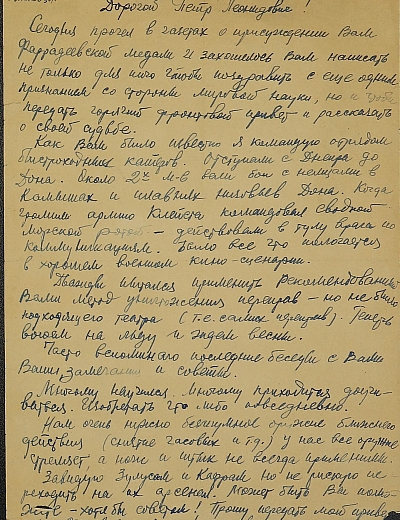 Дорогой Петр Леонидович!
Сегодня прочел в газетах о присуждении Вам
Фаррадеевской медали и захотелось Вам написать
не только для того чтобы поздравить с еще одним
признанием со стороны мировой науки, но и чтобы
передать горячий фронтовой привет и рассказать
о своей судьбе.
Как Вам было известно я командую отрядом
быстроходных катеров. Отступали с Днепра до
Дона. Около 2х м-в вели бои с немцами в
камышах и плавнях низовьев Дона. Когда
громили армию Клейста командовал сводной
морской ротой – действовали в тылу врага по
коммуникациям. Было все что полагается
в хорошем военном кино-сценарии.
Дважды пытался применить рекомендованный
Вами метод уничтожения переправ – но не было
подходящего театра (т.е. самих переправ). Теперь
воюем на льду и ждем весны.
Часто вспоминаю последние беседы с Вами
Ваши замечания и советы.
Многому научился. Многому приходится доучи-
ваться. Изобретать что либо повседневно.
Нам очень нужно бесшумное оружие ближнего
действия (снятие часовых и т.д.) у нас все оружие
стреляет, а нож и штык не всегда применимы.
Завидую Зулусам и Кафрам но не рискую пе-
реходить на их арсенал. Может быть Вы помо-
жете – хотя бы советом! Прошу передать мой привет